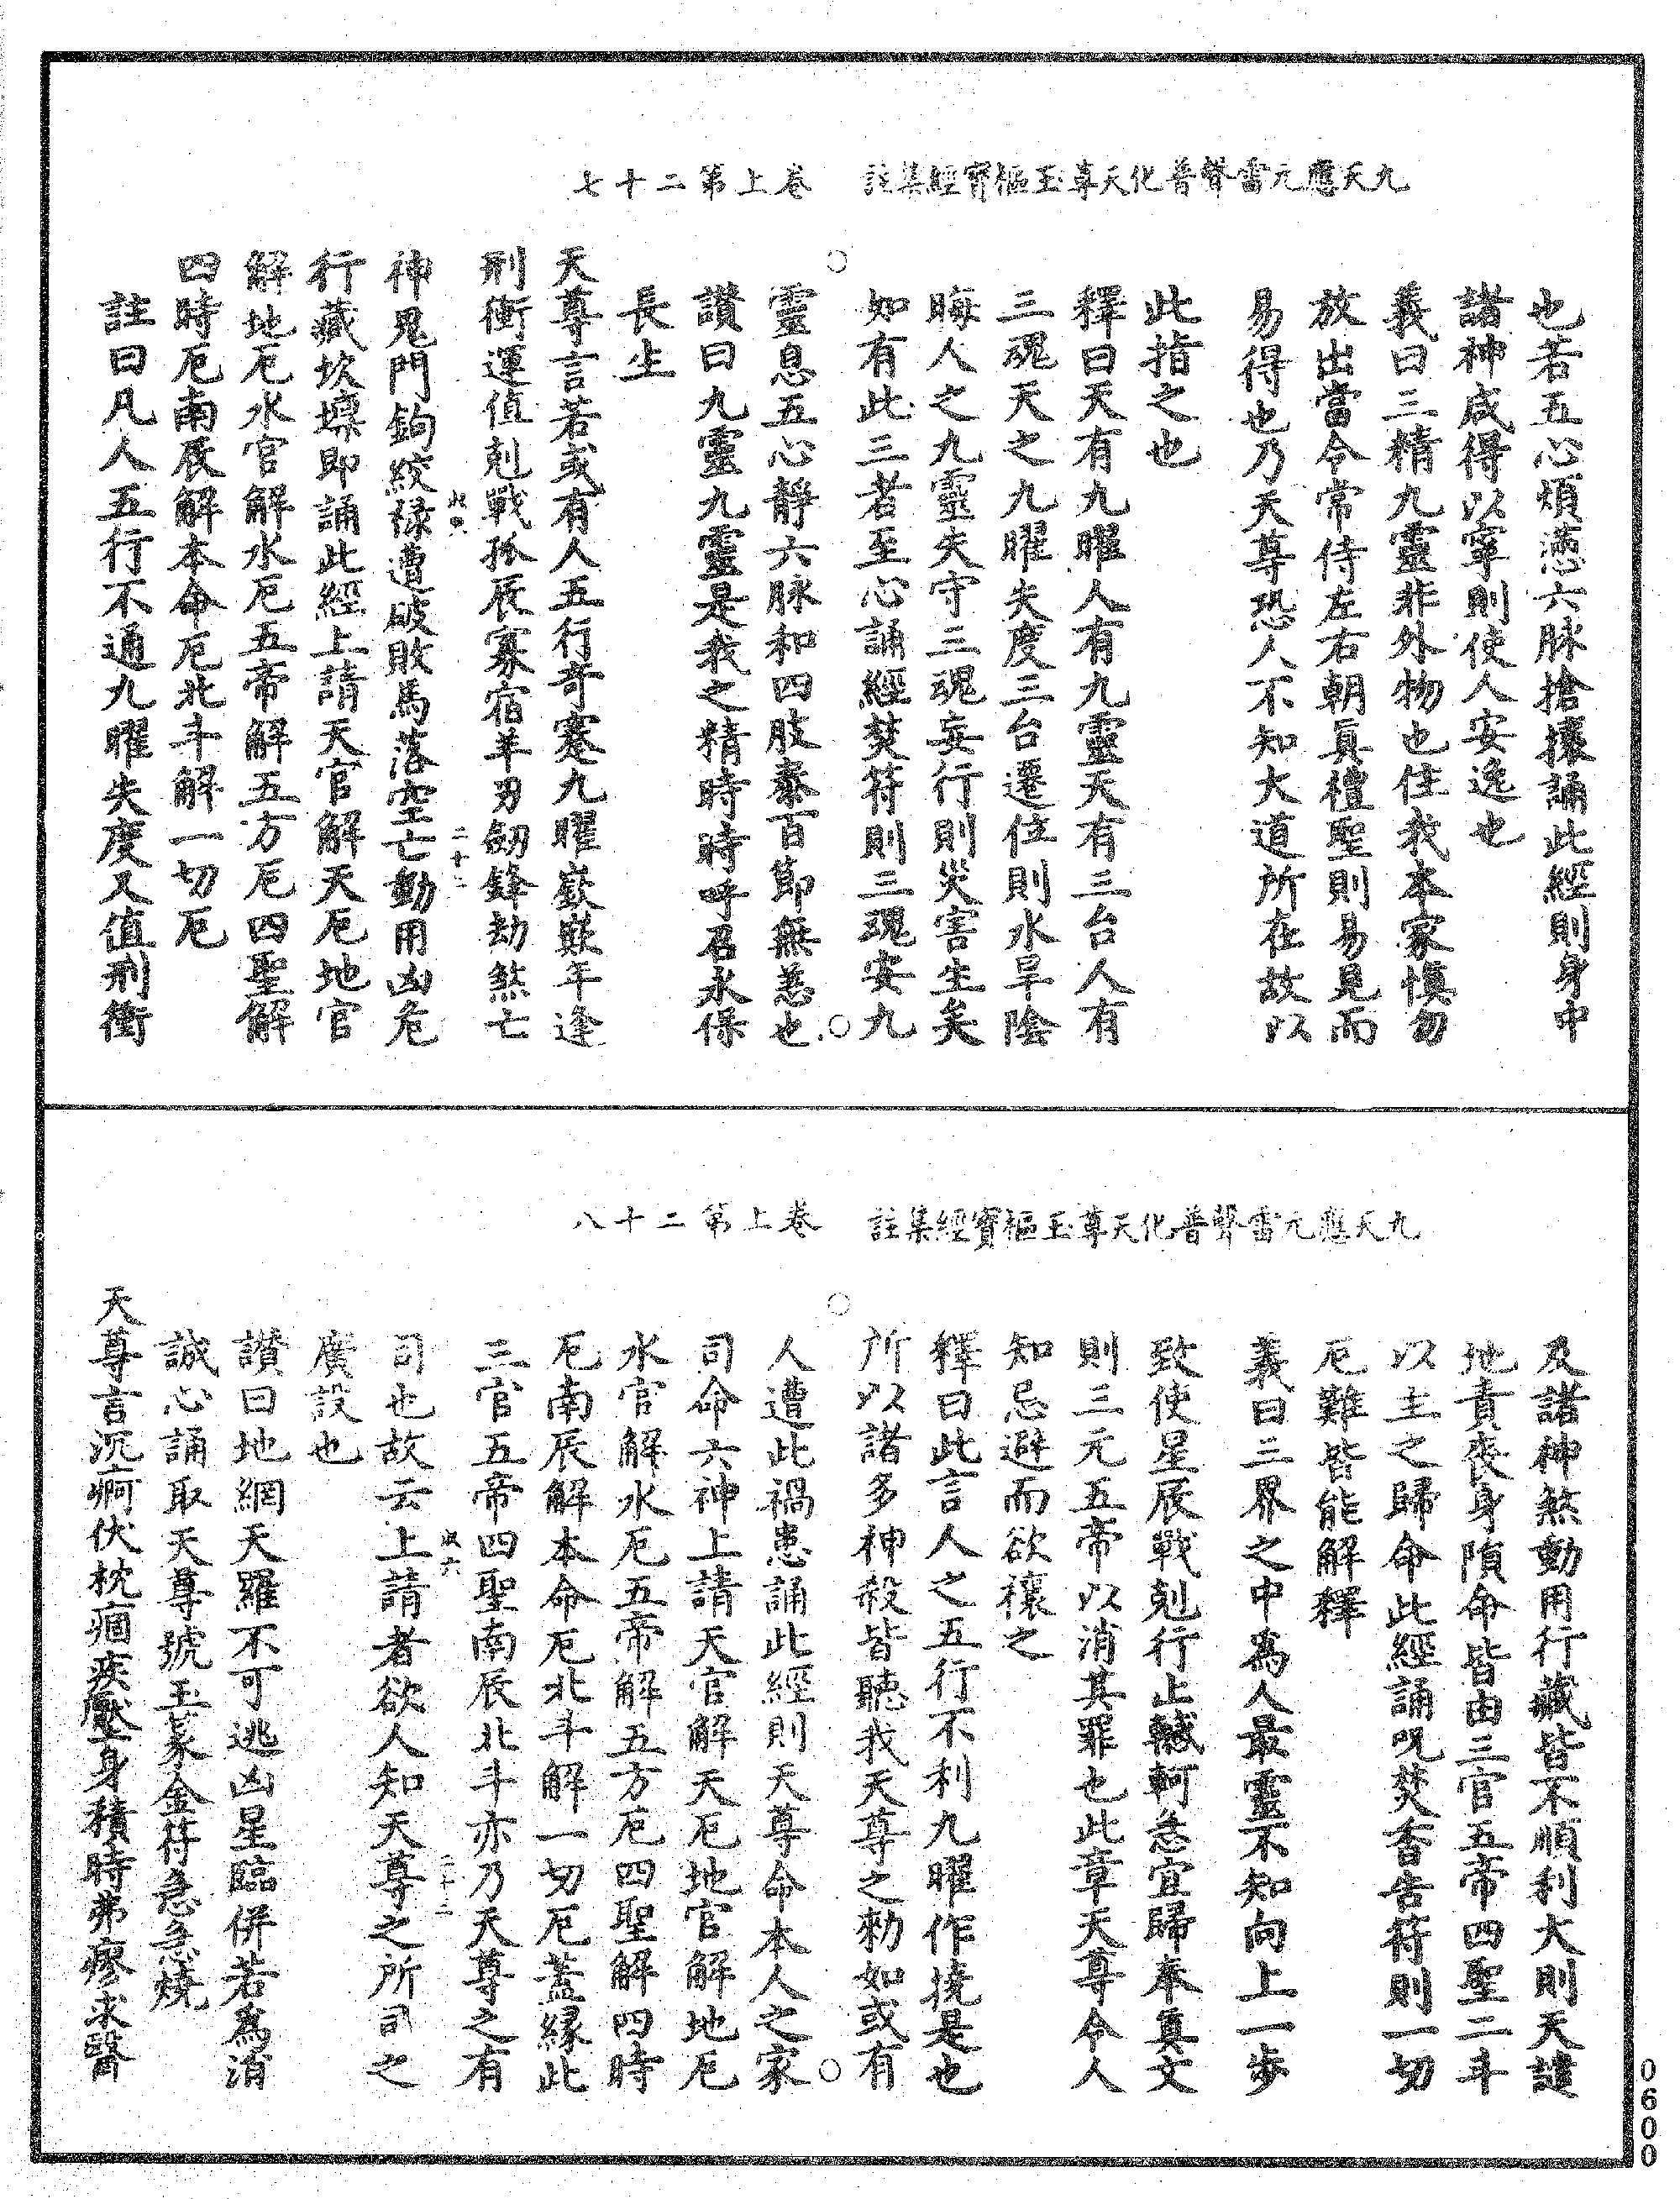 九天應元雷聲普化天尊玉樞寶經集註　卷上第二十七
也若五心煩懣六脉搶攘誦此經則身中
諸神咸得以寧則使人安逸也
義曰三精九靈非外物也住我本家慎勿
放出當令常侍左右朝真禮聖則易見而
易得也乃天尊恐人不知大道所在故以
此指之也
釋曰天有九曜人有九靈天有三台人有
三魂天之九曜失度三台遷位則水旱陰
晦人之九靈失守三魂妄行則災害生矣
如有此三者至心誦經焚符則三魂安九
靈息五心靜六脉和四肢泰百節無恙也
讚曰九靈九靈是我之精時時呼召永保
長生
天尊言若或有人五行奇蹇九曜嶔嶔年逢
刑衝運值剋戰孤辰寡宿羊刃劒鋒劫煞亡
神鬼門鉤絞祿遭破敗馬落空亡動用凶危
行藏坎壈即誦此經上請天官解天厄地官
解地厄水官解水厄五帝解五方厄四聖解
四時厄南辰解本命厄北斗解一切厄
註曰凡人五行不通九曜失度又值刑衝
九天應元雷聲普化天尊玉樞寶經集註　卷上第二十八
及諸神煞動用行藏皆不順利大則天譴
地責喪身隕命皆由三官五帝四聖二斗
以主之歸命此經誦呪焚香告符則一切
厄難皆能解釋
義曰三界之中為人最靈不知向上一步
致使星辰戰剋行止轗軻急宜歸奉真文
則三元五帝以消其罪也此章天尊令人
知忌避而欲禳之
釋曰此言人之五行不利九曜作撓是也
所以諸多神殺皆聽我天尊之勑如或有
人遭此禍患誦此經則天尊命本人之家
司命六神上請天官解天厄地官解地厄
水官解水厄五帝解五方厄四聖解四時
厄南辰解本命厄北斗解一切厄蓋緣此
三官五帝四聖南辰北斗亦乃天尊之有
司也故云上請者欲人知天尊之所司之
廣設也
讚曰地網天羅不可逃凶星臨併若為消
誠心誦取天尊號玉篆金符急急燒
天尊言沉痾伏枕痼疾壓身積時弗瘳求醫
0600